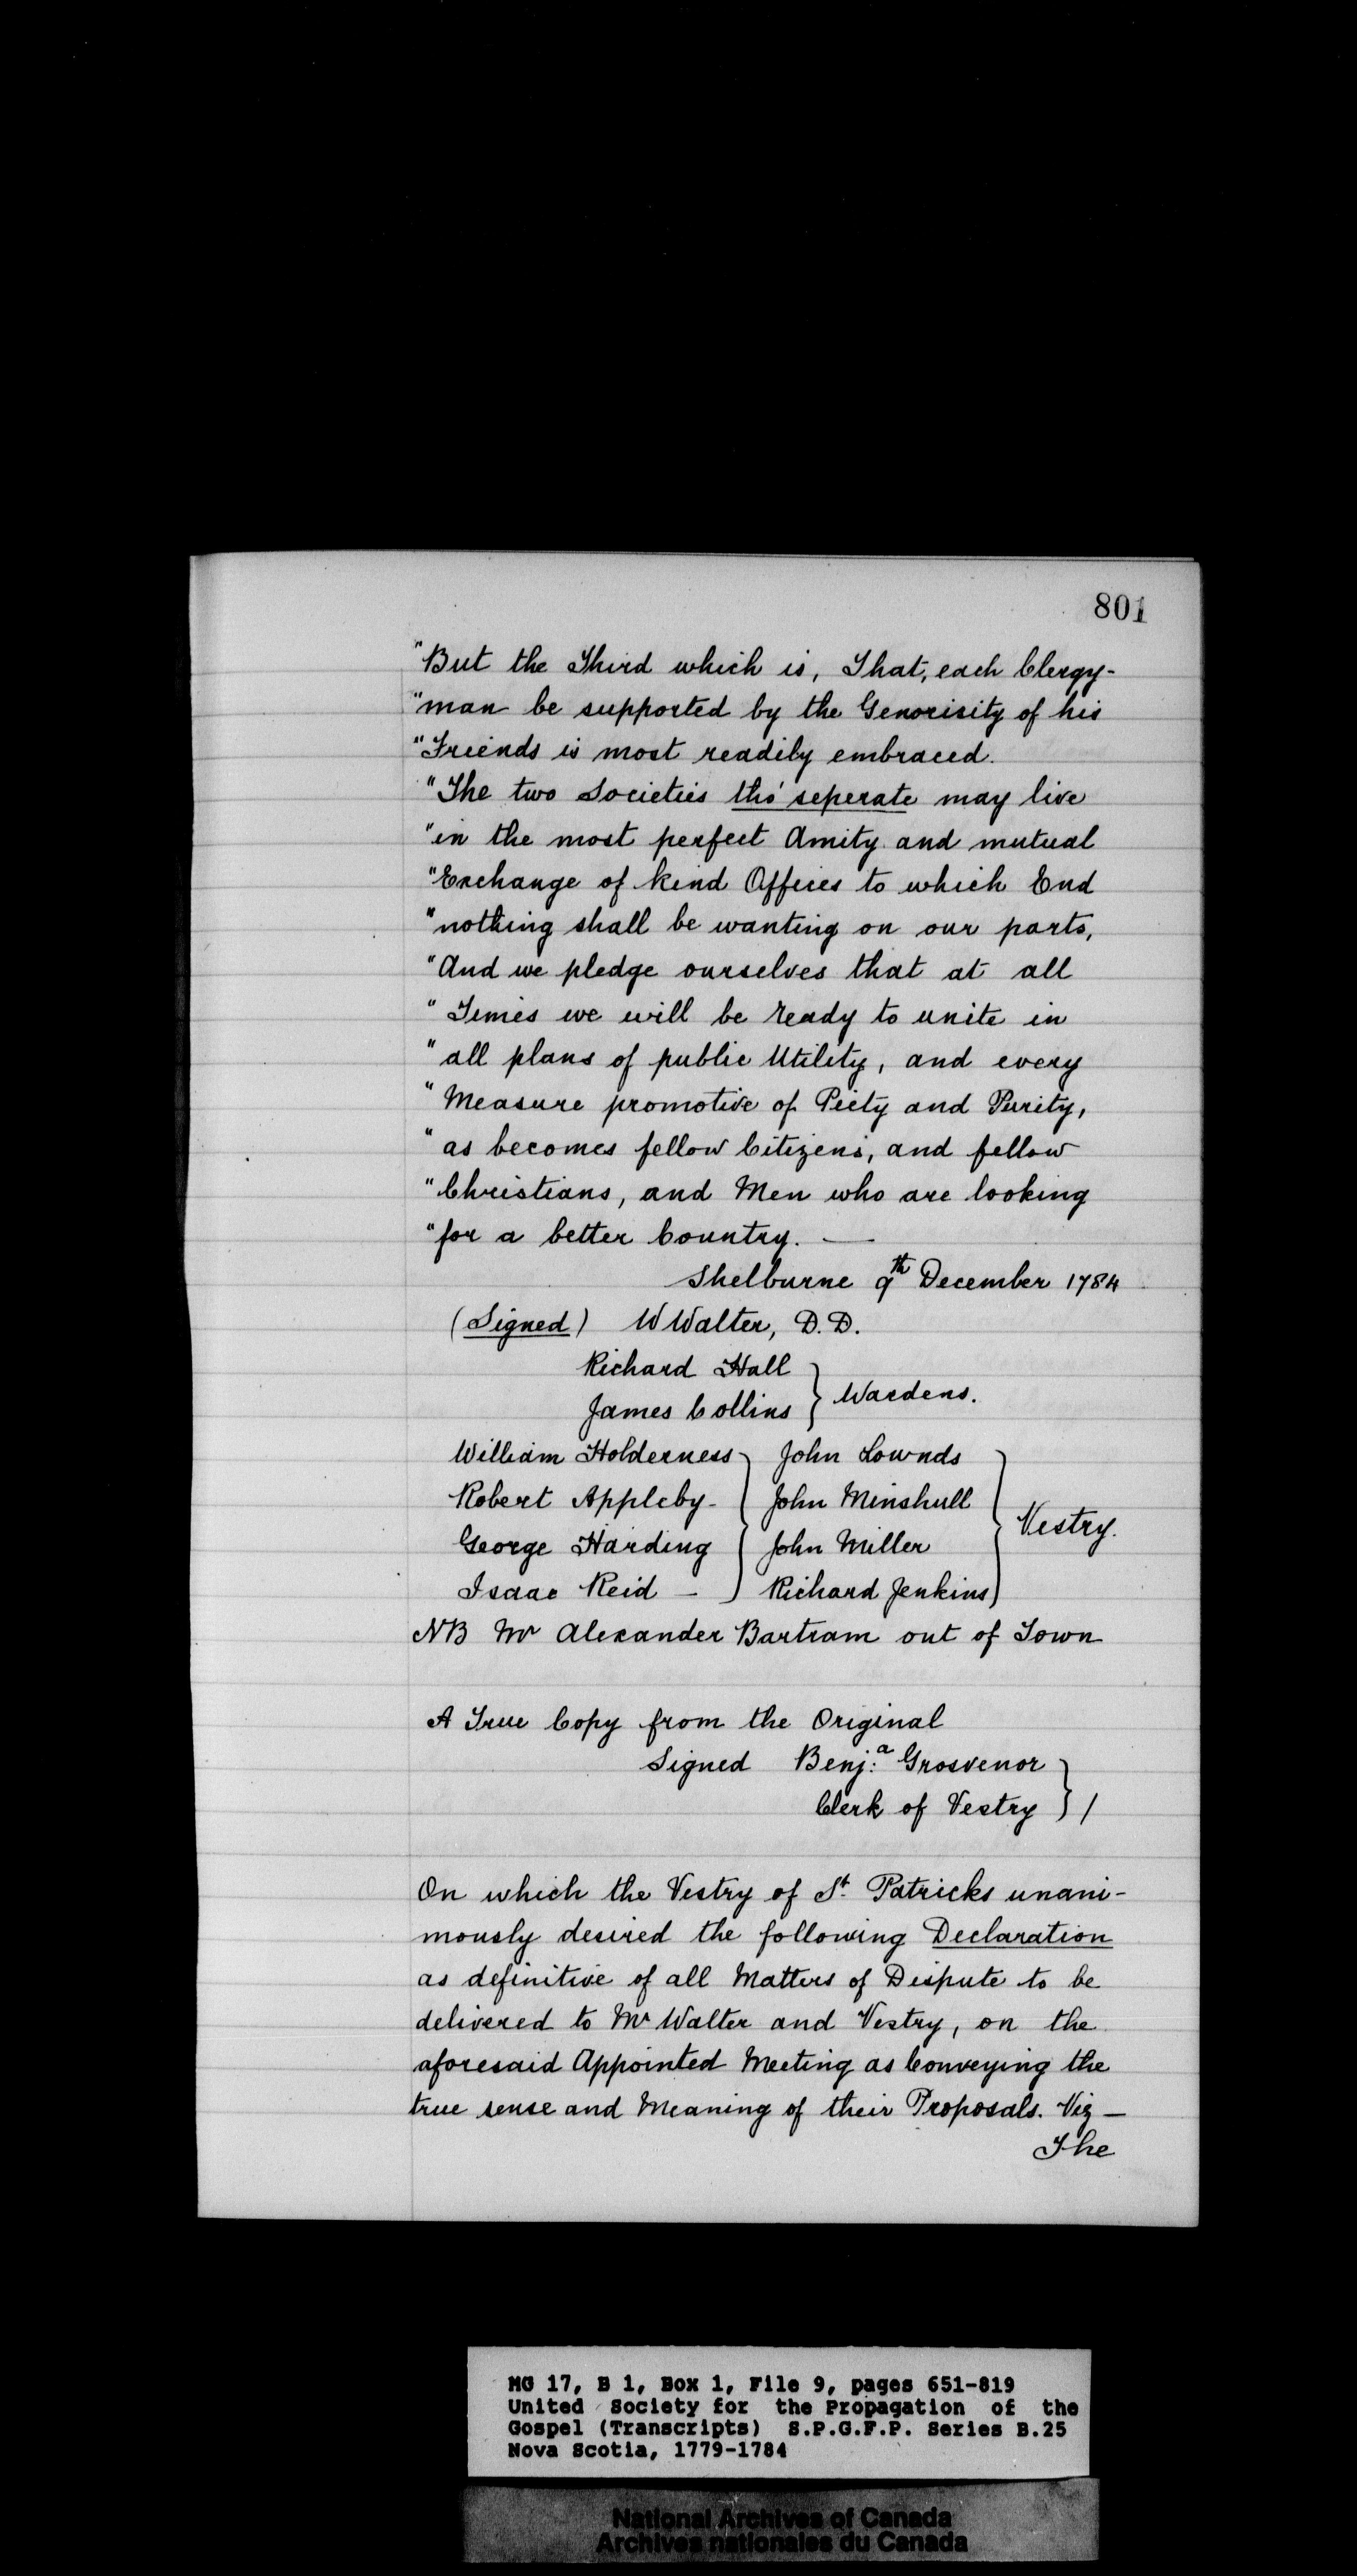 801
"But the Third which is, That, each Clergy-
"man be supported by the Genorisity of his
"Friends is most readily embraced.
"The two Societies tho' seperate may live
"in the most perfect Amity and mutual
"Exchange of kind Offices to which End
"nothing shall be wanting on our parts,
"And we pledge ourselves that at all
"Times we will be ready to unite in
"all plans of public Utility, and every
"Measure promotive of Piety and Purity,
"as becomes fellow Citizens, and fellow
"Christians, and Men who are looking
"for a better Country. —
Shelburne 9th December 1784
(Signed) W Walter, D.D.
Richard Hall
James Collins } Wardens.
William Holderness } John Lownds
Robert Appleby - John Minshull
George Harding John Miller } Vestry.
Isaac Reid — Richard Jenkins
NB Mr Alexander Bartram out of Town
A True Copy from the Original
Signed Benj:a Grosvenor
Clerk of Vestry } /
On which the Vestry of St. Patricks unani-
mously desired the following Declaration
as definitive of all Matters of Dispute to be
delivered to Mr Walter and Vestry, on the
aforesaid Appointed Meeting as Conveying the
true sense and Meaning of their Proposals. Viz —
The
MG 17, B 1, Box 1, File 9, pages 651-819
United Society for the Propagation of the
Gospel (Transcripts) S.P.G.F.P. Series B.25
Nova Scotia, 1779-1784
National Archives of Canada
Archives nationales du Canada